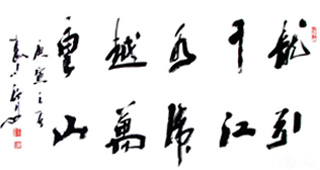 龍引
千江
水虎
越萬
重山
庚寅之夏